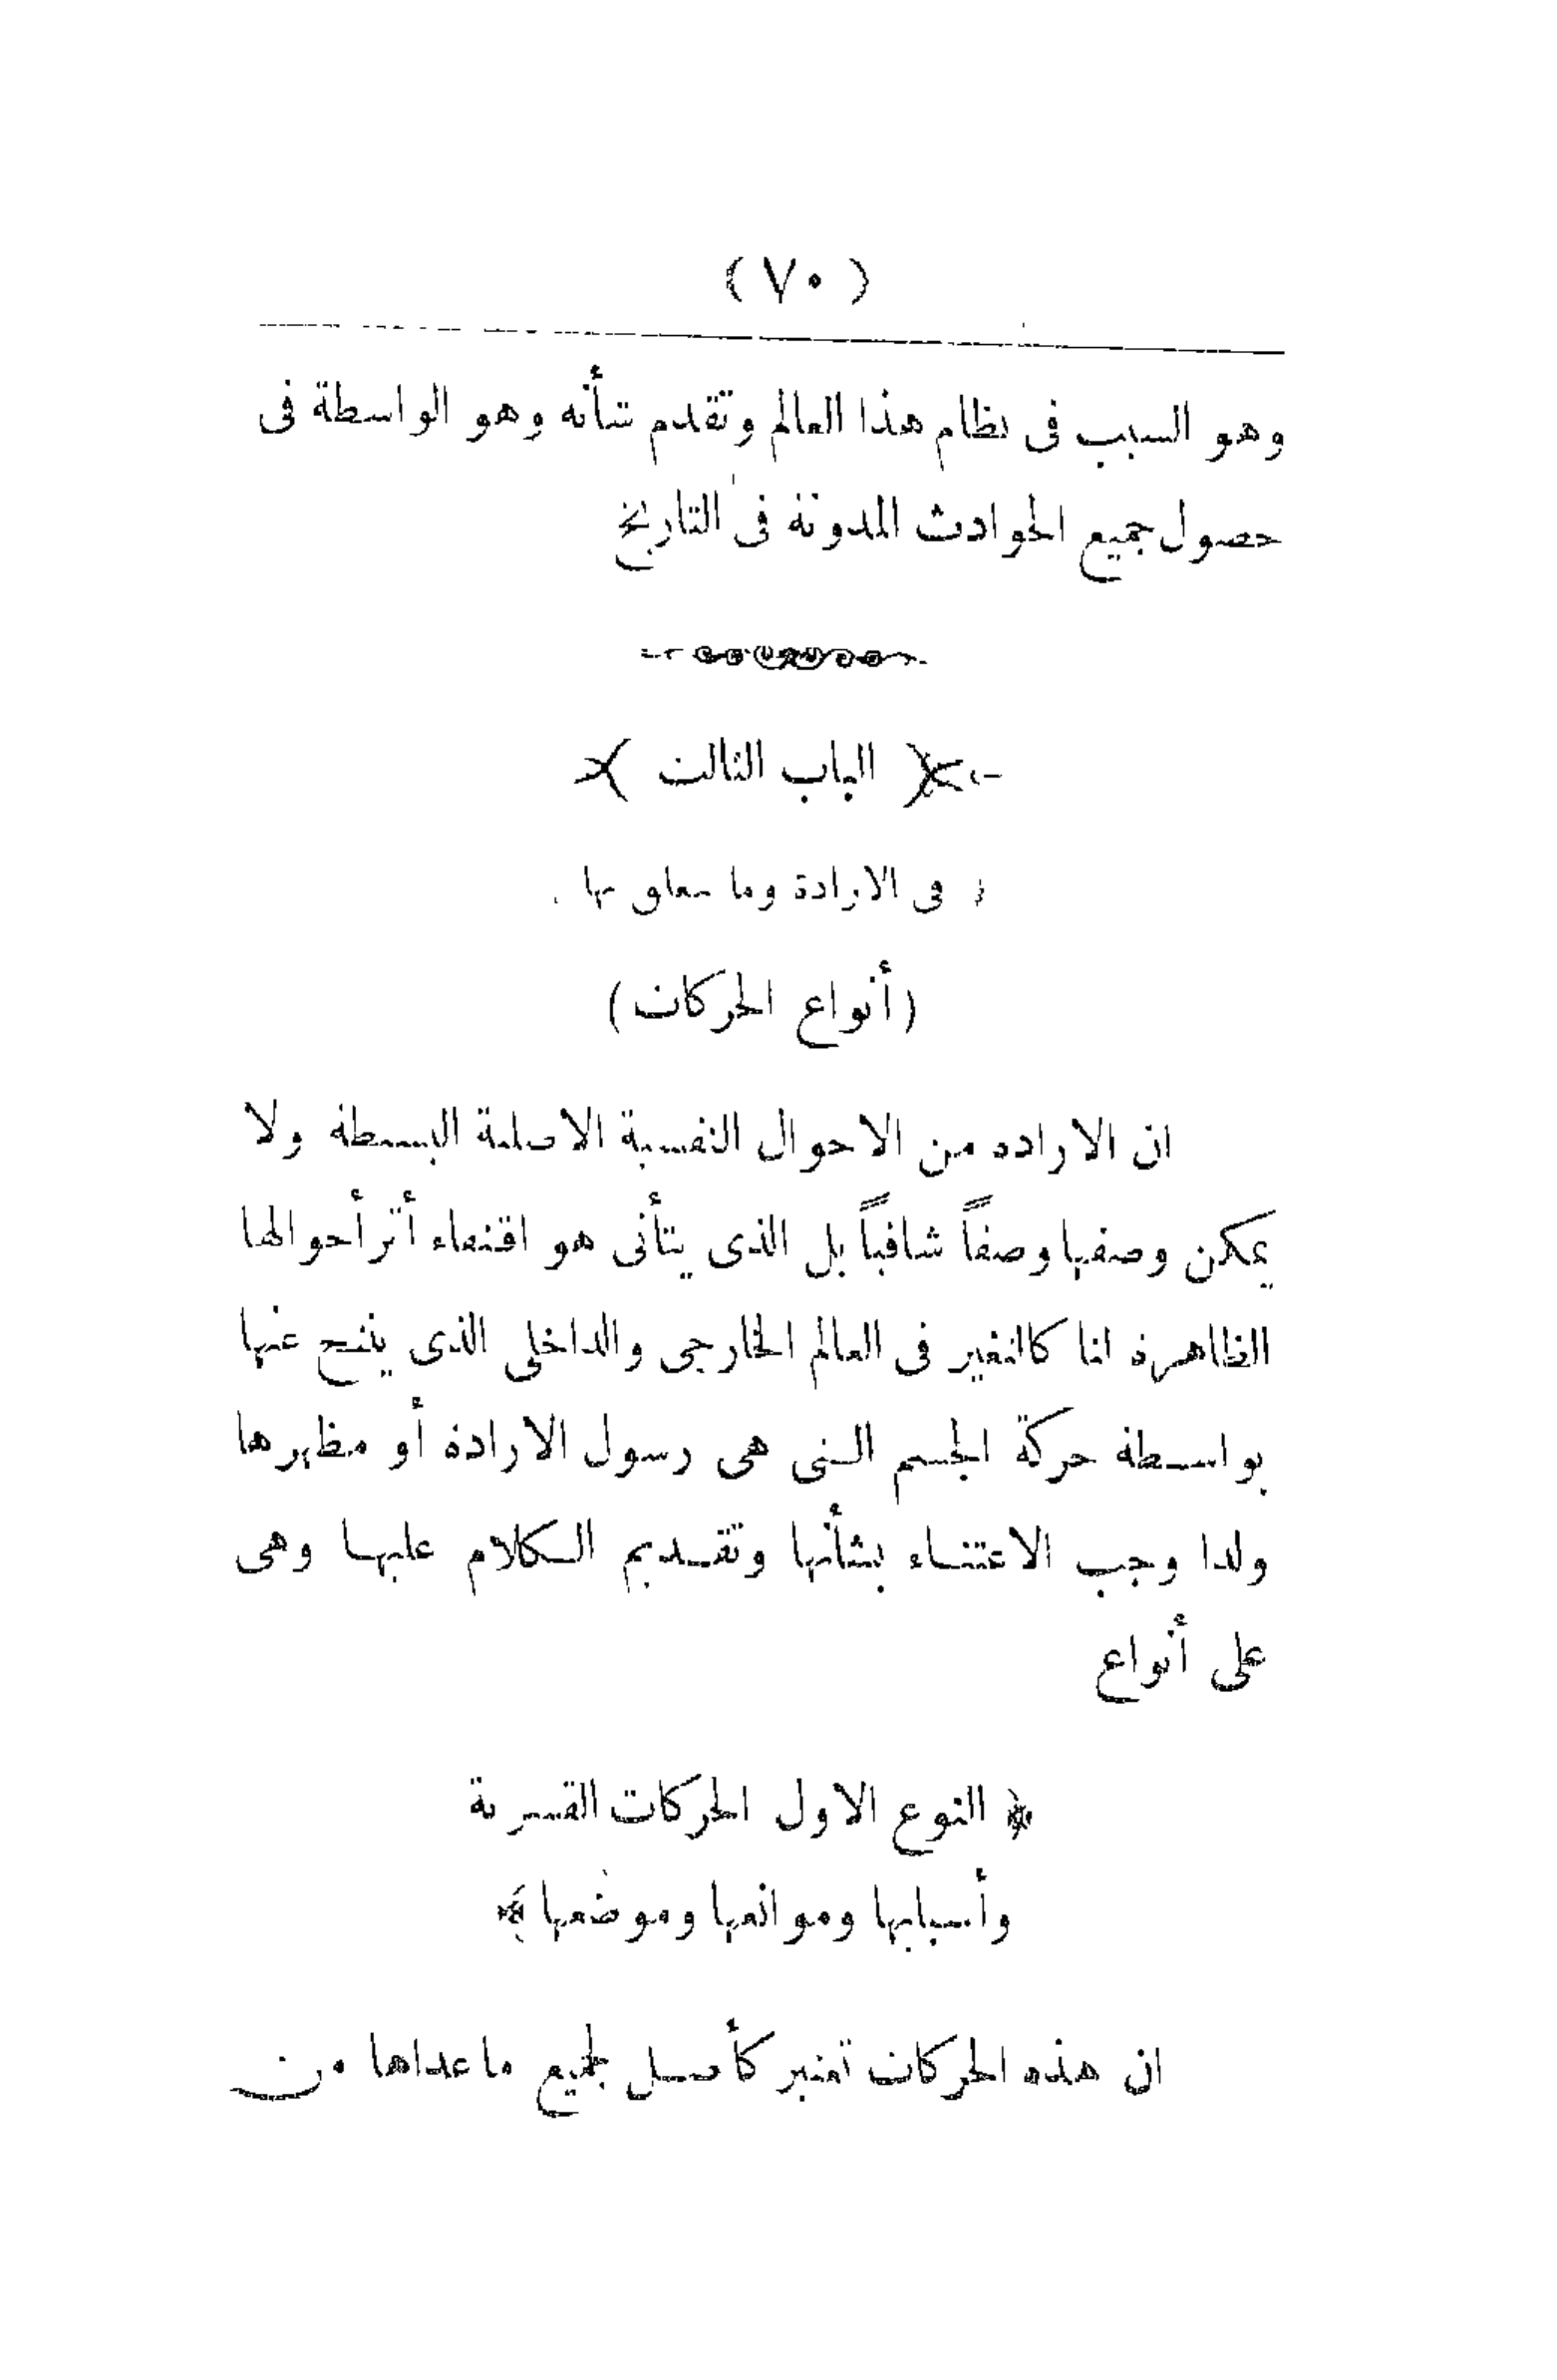 ( ٧٠ )
وهو السبب فى نظام هذا العالم وتقدم شأنه وهو الواسطة فى
حصول جميع الحوادث المدونة فى التاريخ
الباب الثالث
فى الارادة وما يتعلق بها
(أنواع الحركات)
ان الاراده من الاحوال النفسية الاصلية البسيطة ولا
يمكن وصفها وصفاً شافياً بل الذى يتأتى هو اقتفاء أثر أحوالها
الظاهرة لنا كالتغير فى العالم الخارجى والداخلى الذى ينتج عنها
بواسطة حركة الجسم التى هى رسول الارادة أو مظهرها
ولذا وجب الاعتناء بشأنها وتقديم الكلام عليها وهى
على أنواع
﴿ النوع الاول الحركات القسرية
وأسبابها وموانعها وموضعها ﴾
ان هذه الحركات تعتبر كأصل لجميع ماعداها من